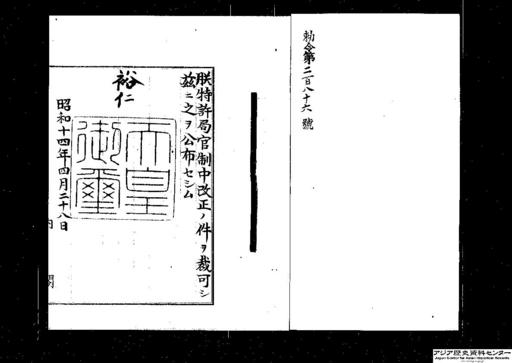 勅令第二百八十六號
朕特許局官制中改正ノ件ヲ裁可シ
茲ニ之ヲ公布セシム
裕仁
天皇御璽
昭和十四年四月二十八日
内閣
アジア歴史資料センター
Japan Center for Asian Historical Records